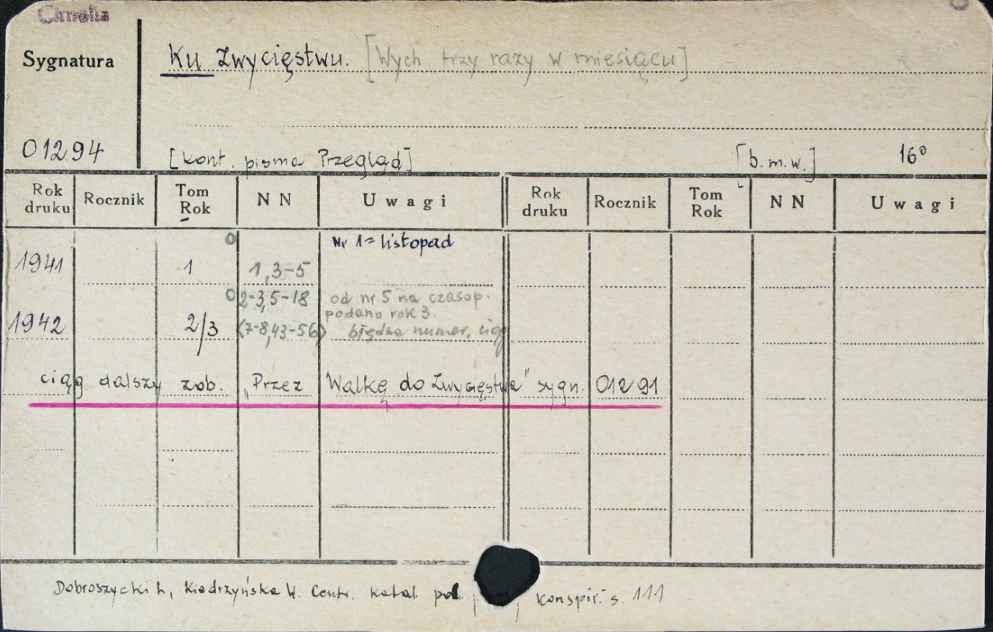 Sygnatura
Ku Zwycięstwu. [Wych trzy razy w miesiącu]
01294
[kont. pisma Przegląd] [b.m.w.] 16°
Rok druku Rocznik Tom Rok NN Uwagi Rok druku Rocznik Tom Rok NN Uwagi
Nr 1 = listopad
1941 1 1,3-5
2-3,5-18 od nr 5 na czasop.
podano rok 3.
1942 2/3 (7-8,43-56) błędna numer. ciąg
ciąg dalszy zob. "Przez Walkę do Zwycięstwa" sygn. 01291
Dobroszycki L, Kiedrzyńska W. Centr. katal. pol. konspir. s. 111